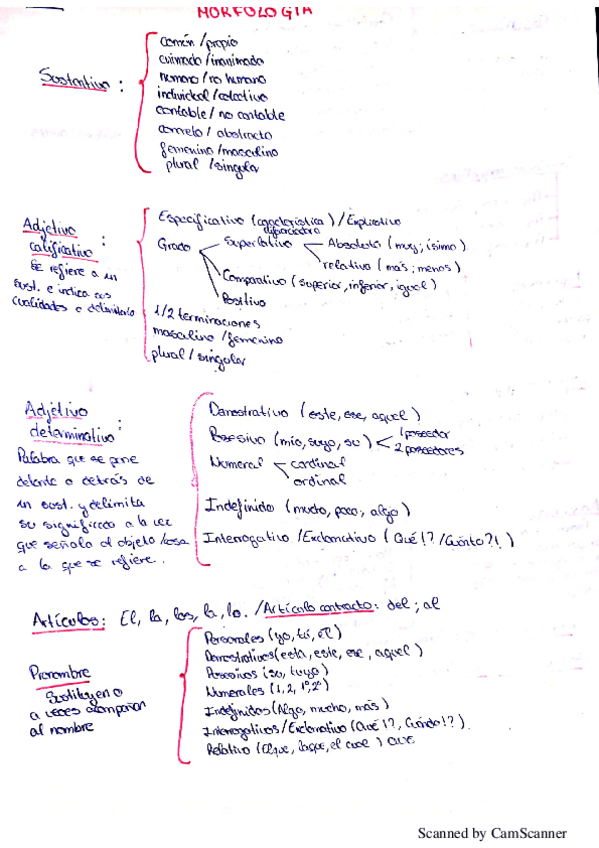 MORFOLOGÍA
Sustantivo:
común / propio
animado / inanimado
humano / no humano
individual / colectivo
contable / no contable
concreto / abstracto
femenino / masculino
plural / singular
Adjetivo
calificativo:
Se refiere a un
sust. e indica sus
cualidades o delimitarlo
Especificativo (característica) / Explicativo
Grado
Superlativo
Absoluto (muy; ísimo)
relativo (más; menos)
Comparativo (superior, inferior, igual)
Positivo
1/2 terminaciones
masculino / femenino
plural / singular
Adjetivo
determinativo:
Palabra que se pone
delante o detrás de
un sust. y delimita
su significado a la vez
que señala el objeto/cosa
a la que se refiere.
Demostrativo (este, ese, aquel)
Posesivo (mío, suyo, su)
1 poseedor
2 poseedores
Numeral
cardinal
ordinal
Indefinido (mucho, poco, algo)
Interrogativo / Exclamativo (Qué!? / Cuánto?!)
Artículos: El, la, los, la, lo. / Artículo contracto: del; al
Pronombre
Sustituyen o
a veces acompañan
al nombre
Personales (yo, tú, él)
Demostrativos (esta, este, ese, aquel)
Posesivos (su, tuyo)
Numerales (1, 2, 1º, 2º)
Indefinidos (Algo, mucho, más)
Interrogativos / Exclamativo (Qué!?, Cuándo!?)
Relativo (El que, la que, el cual) QUE
Scanned by CamScanner